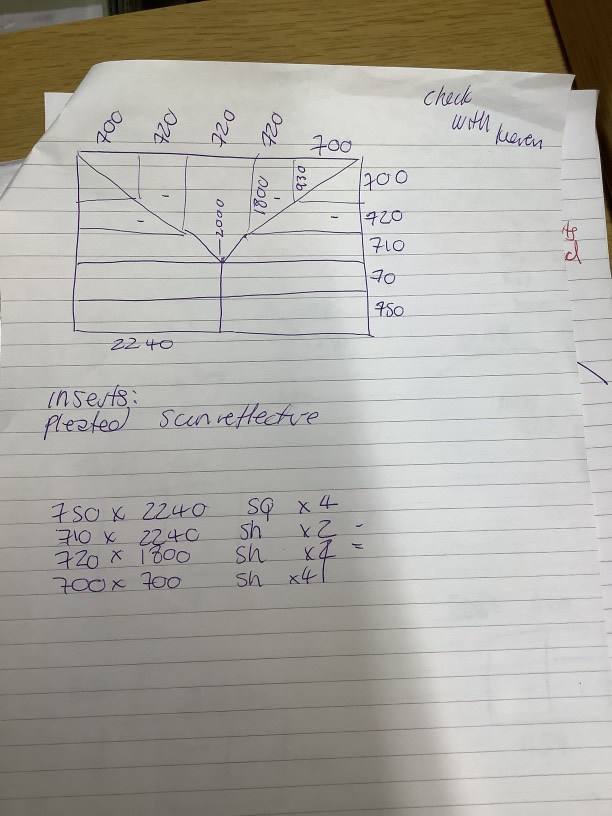 check
with Kieven
700 720 720 720 700
700
930
1800
720
2000
710
70
750
2240
inserts:
pleated sunreflective
750 x 2240 SQ x 4
710 x 2240 sh x2 -
720 x 1800 sh x4 =
700 x 700 sh x4